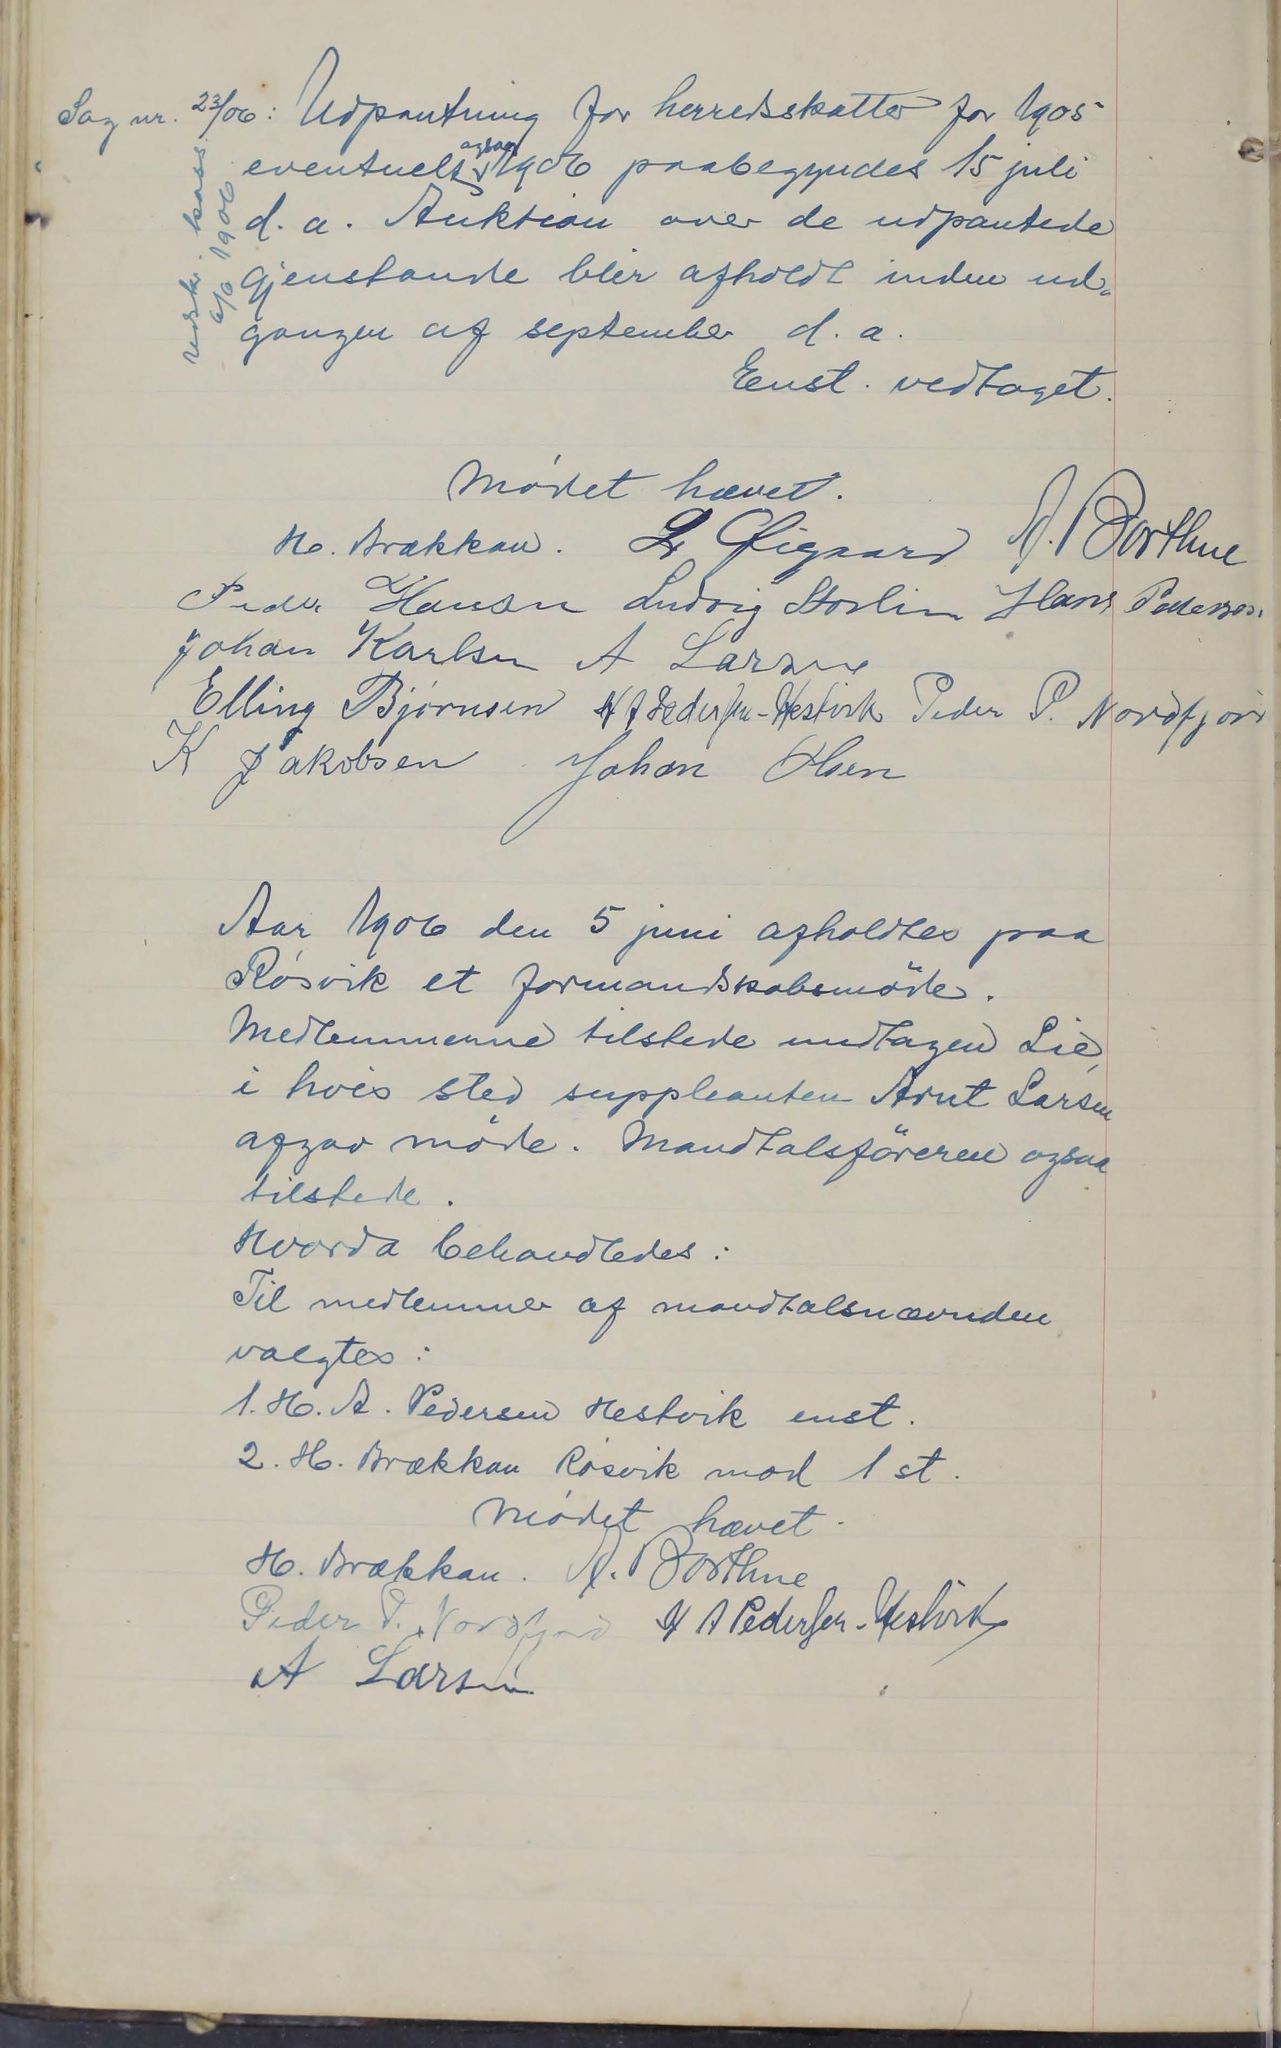 Sag nr. 23/06: Udpantning for herredsskatter for 1905
ogsaa
eventuelt 1906 paabegyndes 15 juli
d. a. Auktion over de udpantede
gjenstande blir afholdt inden ud-
gangen af september d. a.
Enst. vedtaget.
udskr. kass.
6/6 1906
Mødet hævet.
H. Brækkan. A. Borthne
Peder Hansen Ludvig Storlien Hans Pedersen
Johan Karlsen A Larsen
Elling Bjørnsen H A Pedersen-Hestvik Peder P. Nordfjord
K Jakobsen Johan Olsen
Aar 1906 den 5 juni afholdtes paa
Røsvik et formandskabsmöde.
Medlemmerne tilstede undtagen Lie,
i hvis sted suppleanten Arnt Larsen
afgav möde. Mandtalsföreren ogsaa
tilstede.
Hvorda behandledes:
Til medlemmer af mandtalsnævnden
valgtes:
1. H. A. Pedersen Hestvik enst.
2. H. Brækkan Røsvik mod 1 st.
Mødet hævet.
H. Brækkan. A. Borthne
Peder P. Nordfjord H A Pedersen-Hestvik
A Larsen